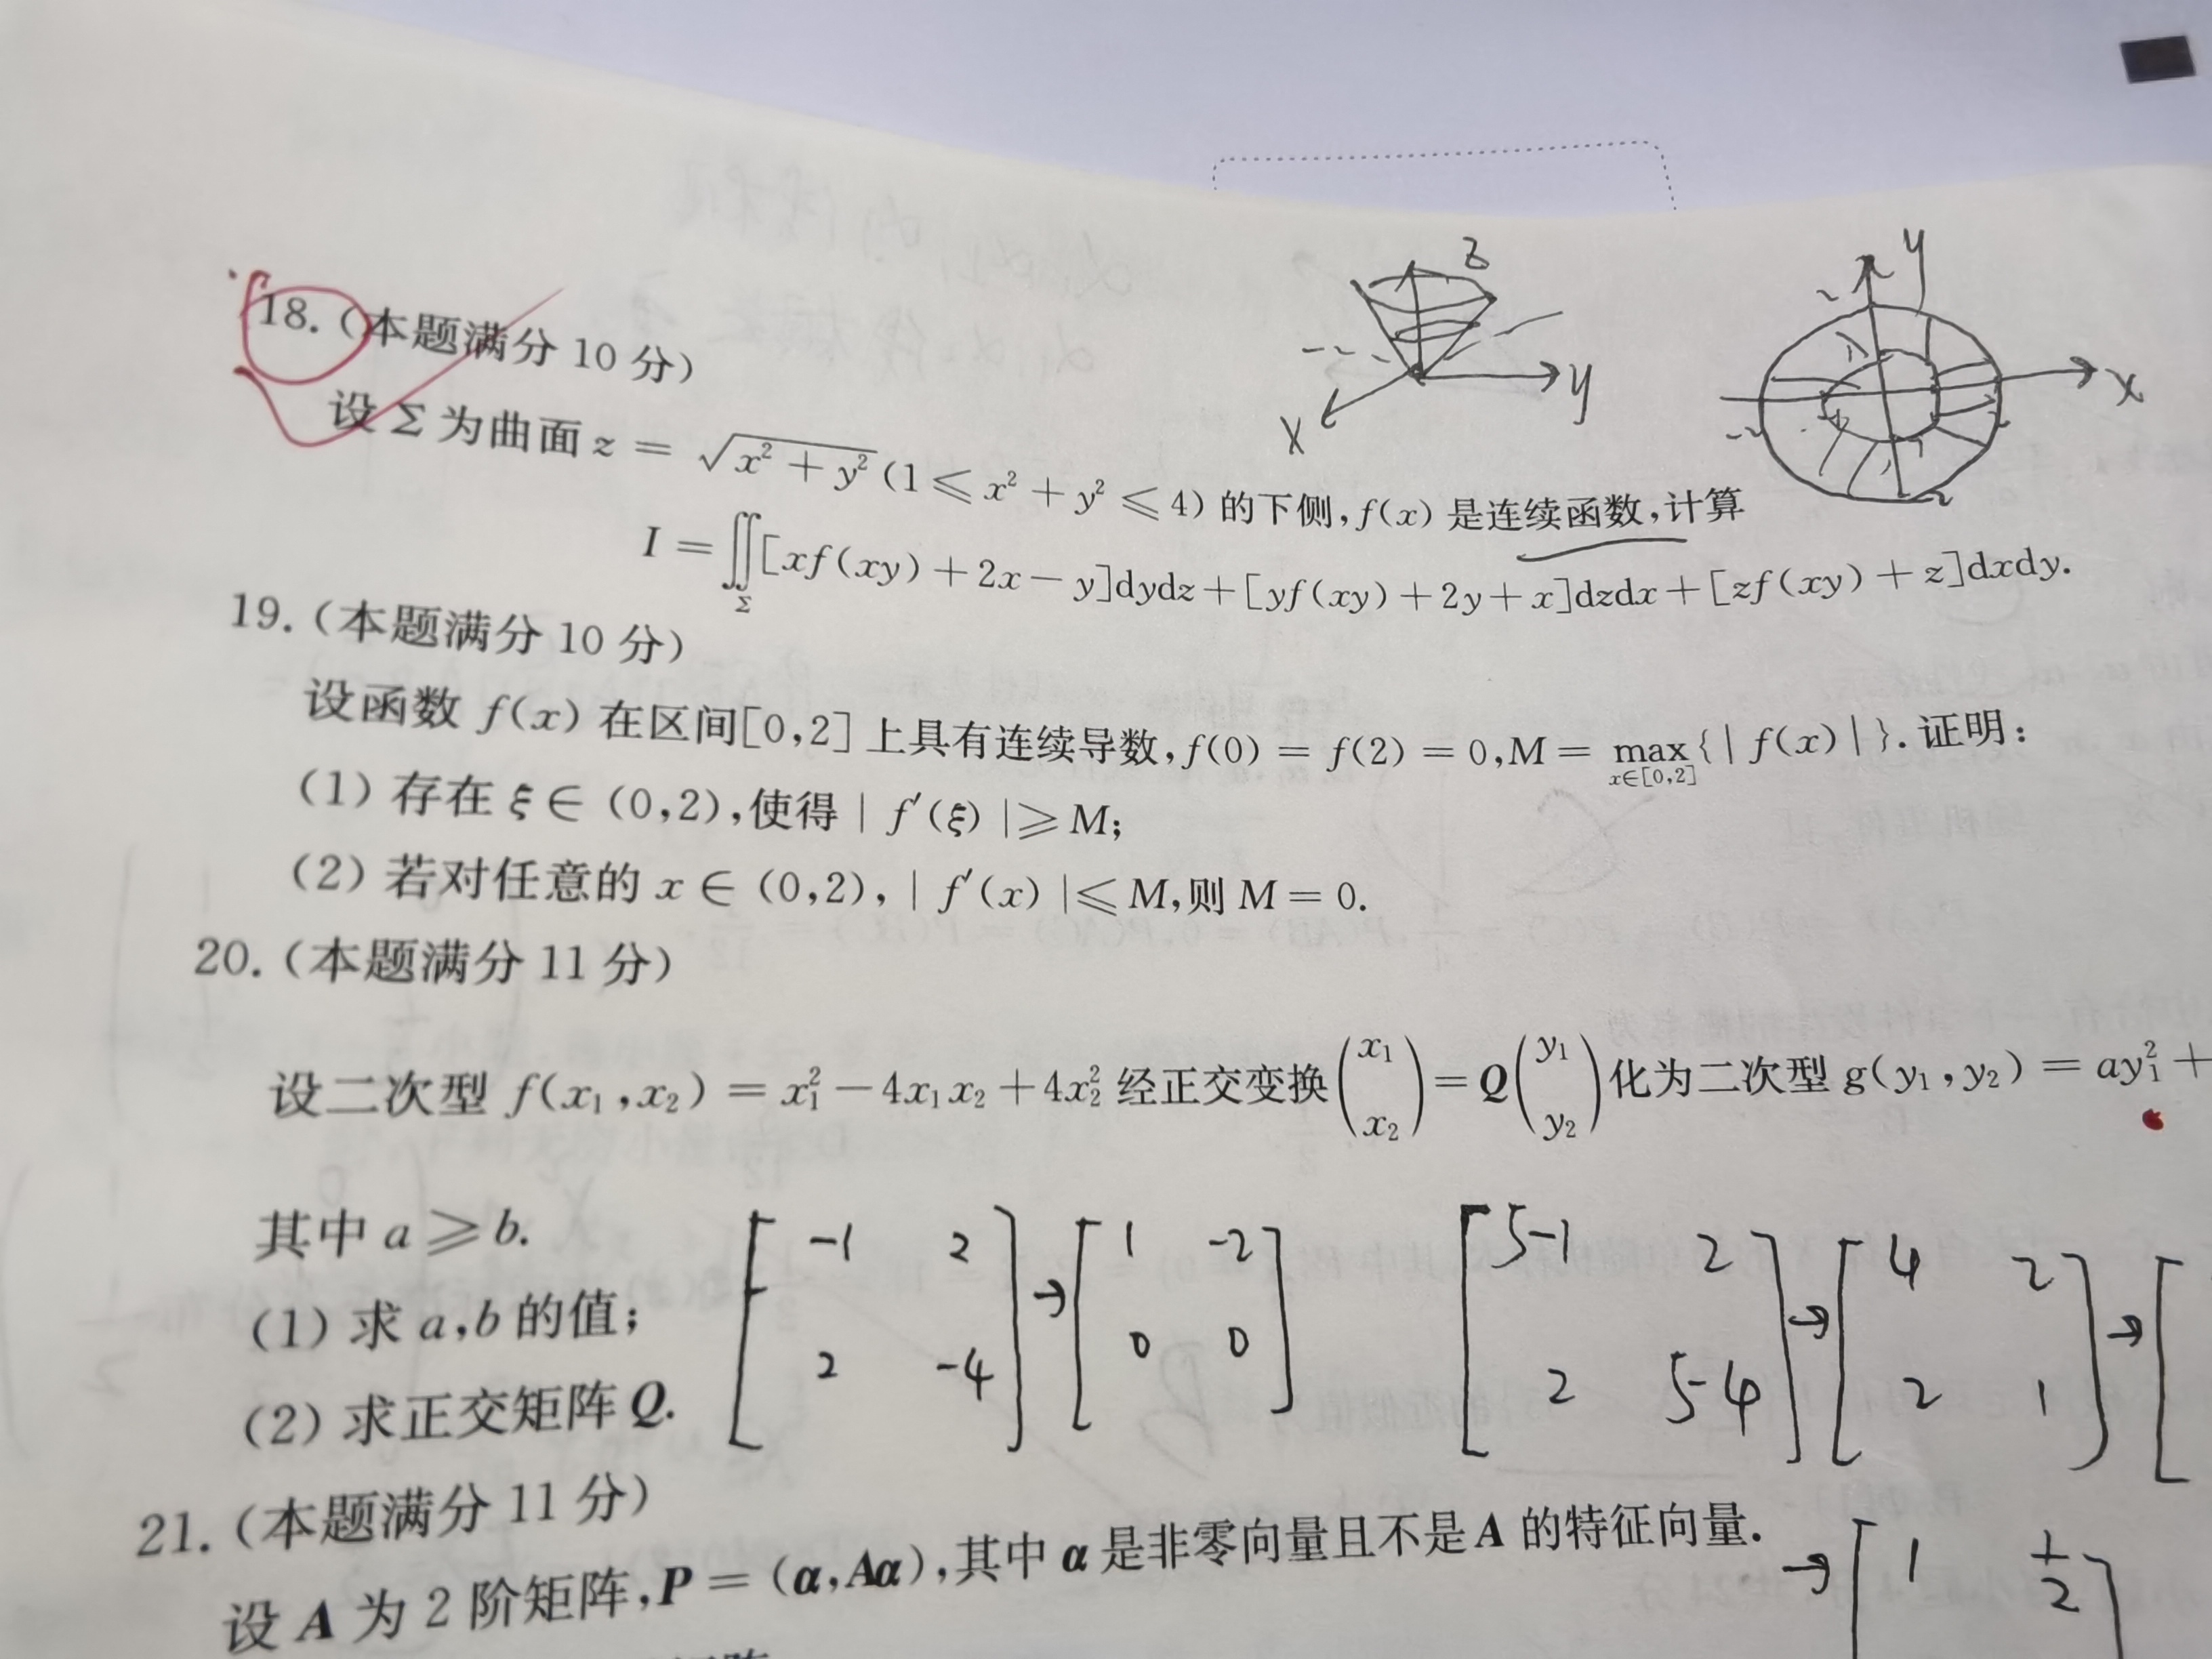 18.(本题满分 10 分)
设 Σ 为曲面 z = √(x² + y²) (1 ⩽ x² + y² ⩽ 4) 的下侧, f(x) 是连续函数, 计算
I = ∬_Σ [xf(xy) + 2x − y]dydz + [yf(xy) + 2y + x]dzdx + [zf(xy) + z]dxdy.
19.(本题满分 10 分)
设函数 f(x) 在区间[0,2] 上具有连续导数, f(0) = f(2) = 0, M = max_{x∈[0,2]}{| f(x) |}. 证明:
(1) 存在 ξ ∈ (0,2), 使得 | f′(ξ) | ⩾ M;
(2) 若对任意的 x ∈ (0,2), | f′(x) | ⩽ M, 则 M = 0.
20.(本题满分 11 分)
设二次型 f(x₁,x₂) = x₁² − 4x₁x₂ + 4x₂² 经正交变换 (x₁ x₂) = Q (y₁ y₂) 化为二次型 g(y₁,y₂) = ay₁² +
其中 a ⩾ b.
(1) 求 a,b 的值;
(2) 求正交矩阵 Q.
21.(本题满分 11 分)
设 A 为 2 阶矩阵, P = (α,Aα), 其中 α 是非零向量且不是 A 的特征向量.
z
y
x
y
x
[ -1 2
2 -4 ] → [ 1 -2
0 0 ]
[ 5-1 2
2 5-4 ] → [ 4 2
2 1 ] → [
→ [ 1 1/2